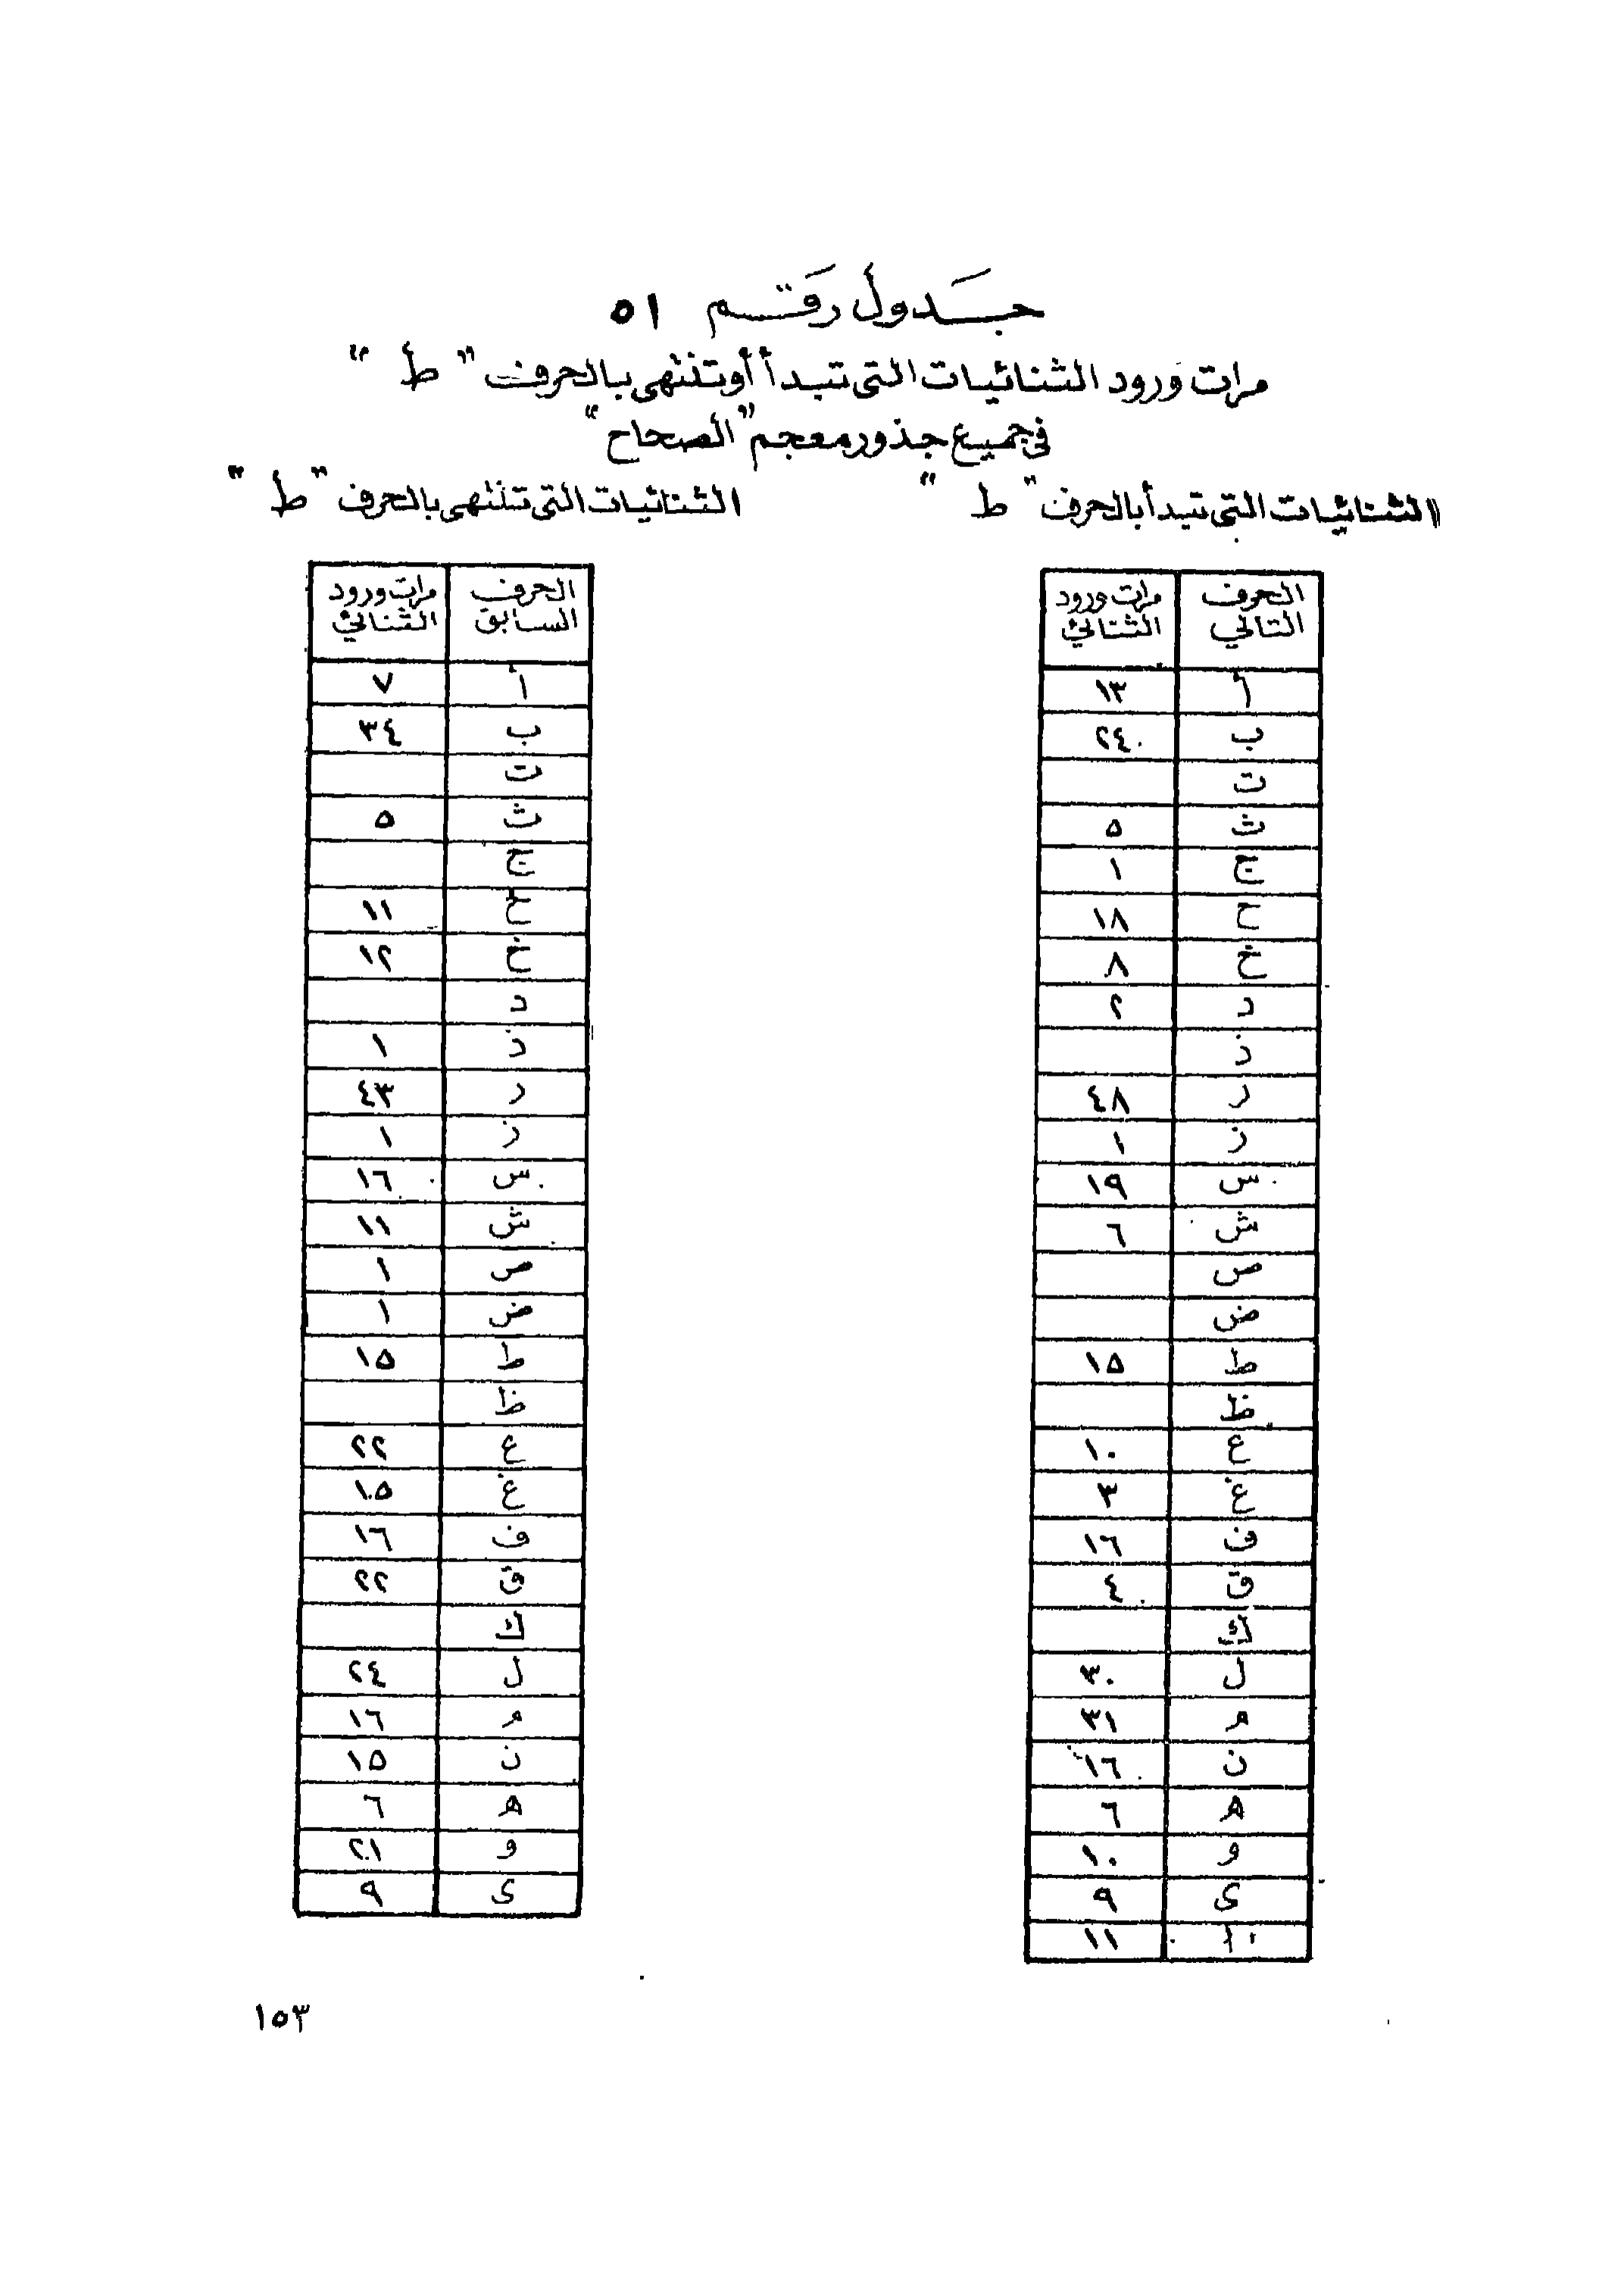 جَدول رقم ٥١
مرات ورود الثنائيات التى تبدأ أو تنتهى بالحرف " ط "
فى جميع جذور معجم "الصحاح"
الثنائيات التى تبدأ بالحرف " ط "
الحرف التالي	مرات ورود الثنائي
أ	١٣
ب	٢٤
ت
ث	٥
ج	١
ح	١٨
خ	٨
د	٢
ذ
ر	٤٨
ز	١
س	١٩
ش	٦
ص
ض
ط	١٥
ظ
ع	١٠
غ	٣
ف	١٦
ق	٤
ك
ل	٣٠
م	٣١
ن	١٦
ه	٦
و	١٠
ى	٩
ا	١١
الثنائيات التى تنتهى بالحرف " ط "
الحرف السابق	مرات ورود الثنائي
أ	٧
ب	٣٤
ت
ث	٥
ج
ح	١١
خ	١٢
د
ذ	١
ر	٤٣
ز	١
س	١٦
ش	١١
ص	١
ض	١
ط	١٥
ظ
ع	٢٢
غ	١٥
ف	١٦
ق	٢٢
ك
ل	٢٤
م	١٦
ن	١٥
ه	٦
و	٢١
ى	٩
١٥٣